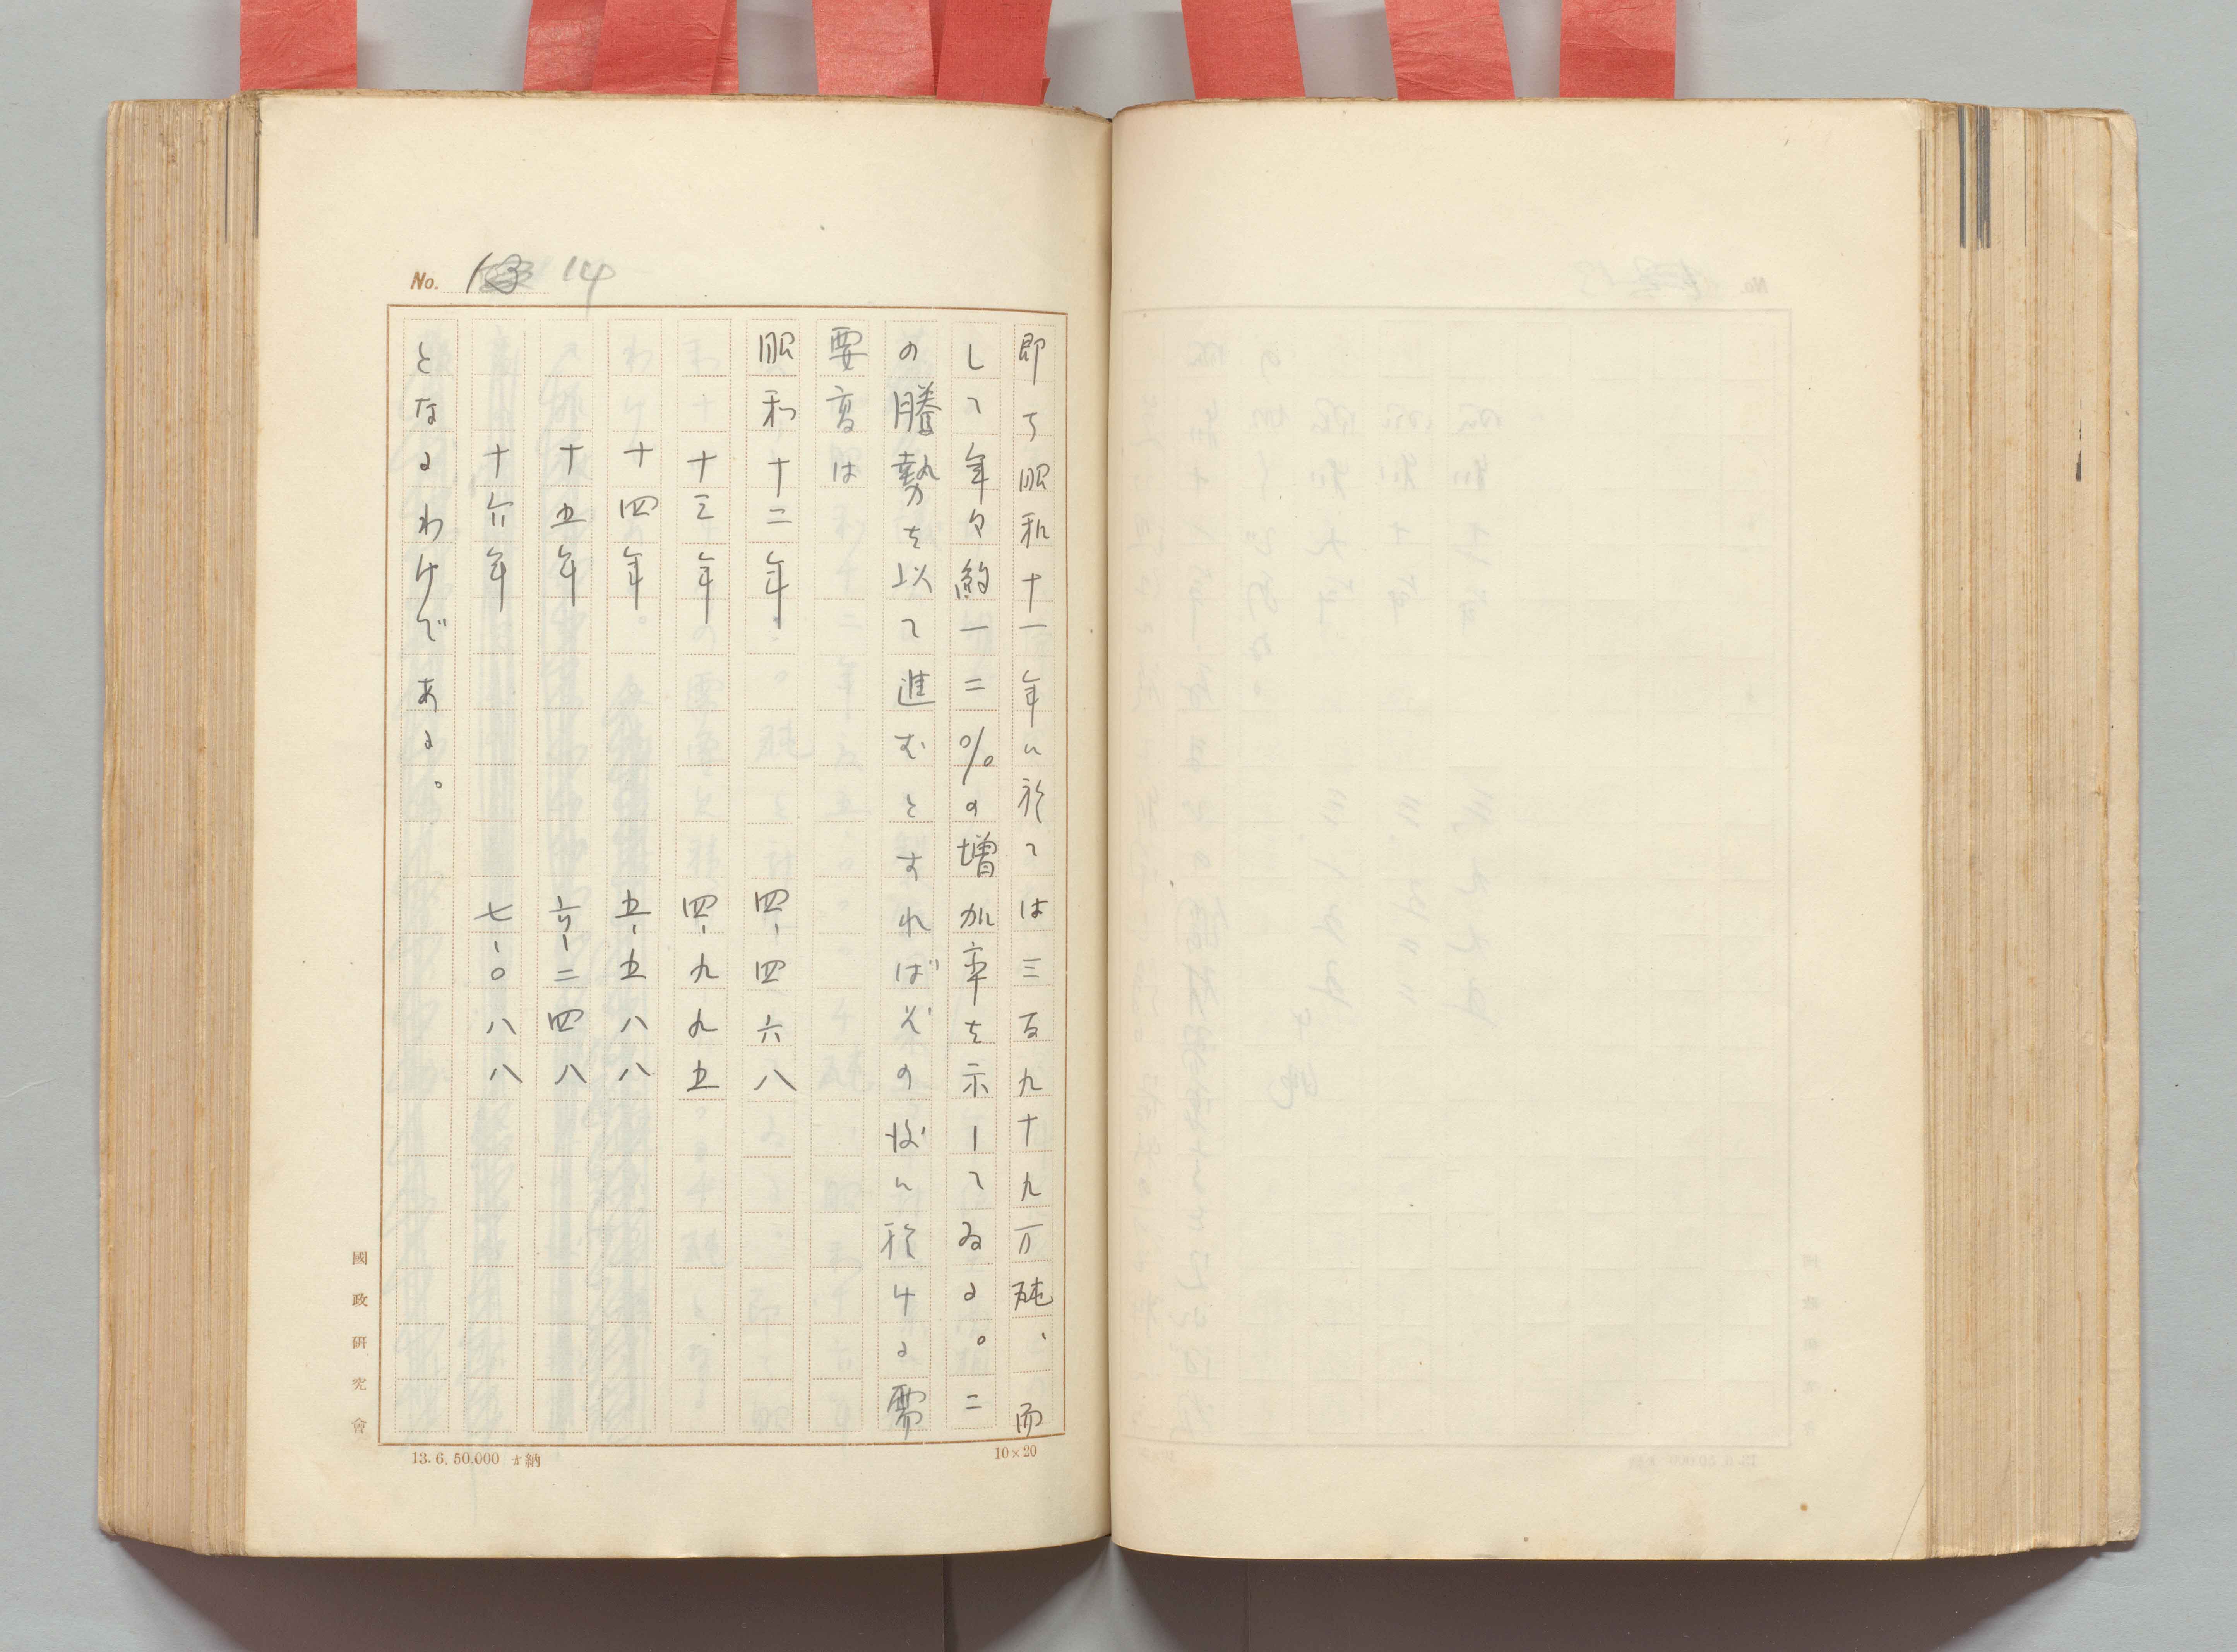 No. 14
即ち昭和十一年に於ては三百九十九万砘、而
して年々約一二%の増加率を示してゐる。二
の騰勢を以て進むとすれば炭の後に於ける需
要高は
昭和十二年 四、四六八
十三年 四、九九五
十四年 五、五八八
十五年 六、二四八
十六年 七、〇八八
となるわけである。
國政研究會
13.6.50.000 納
10×20